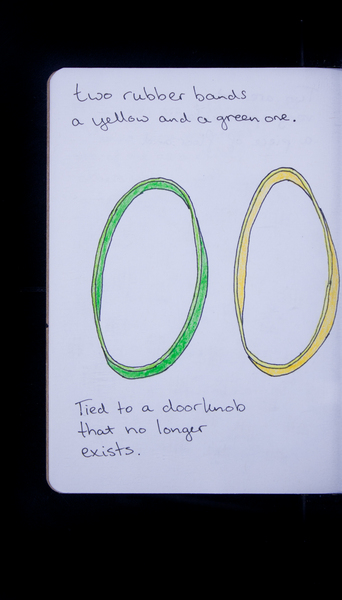 two rubber bands
a yellow and a green one.
Tied to a doorknob
that no longer
exists.